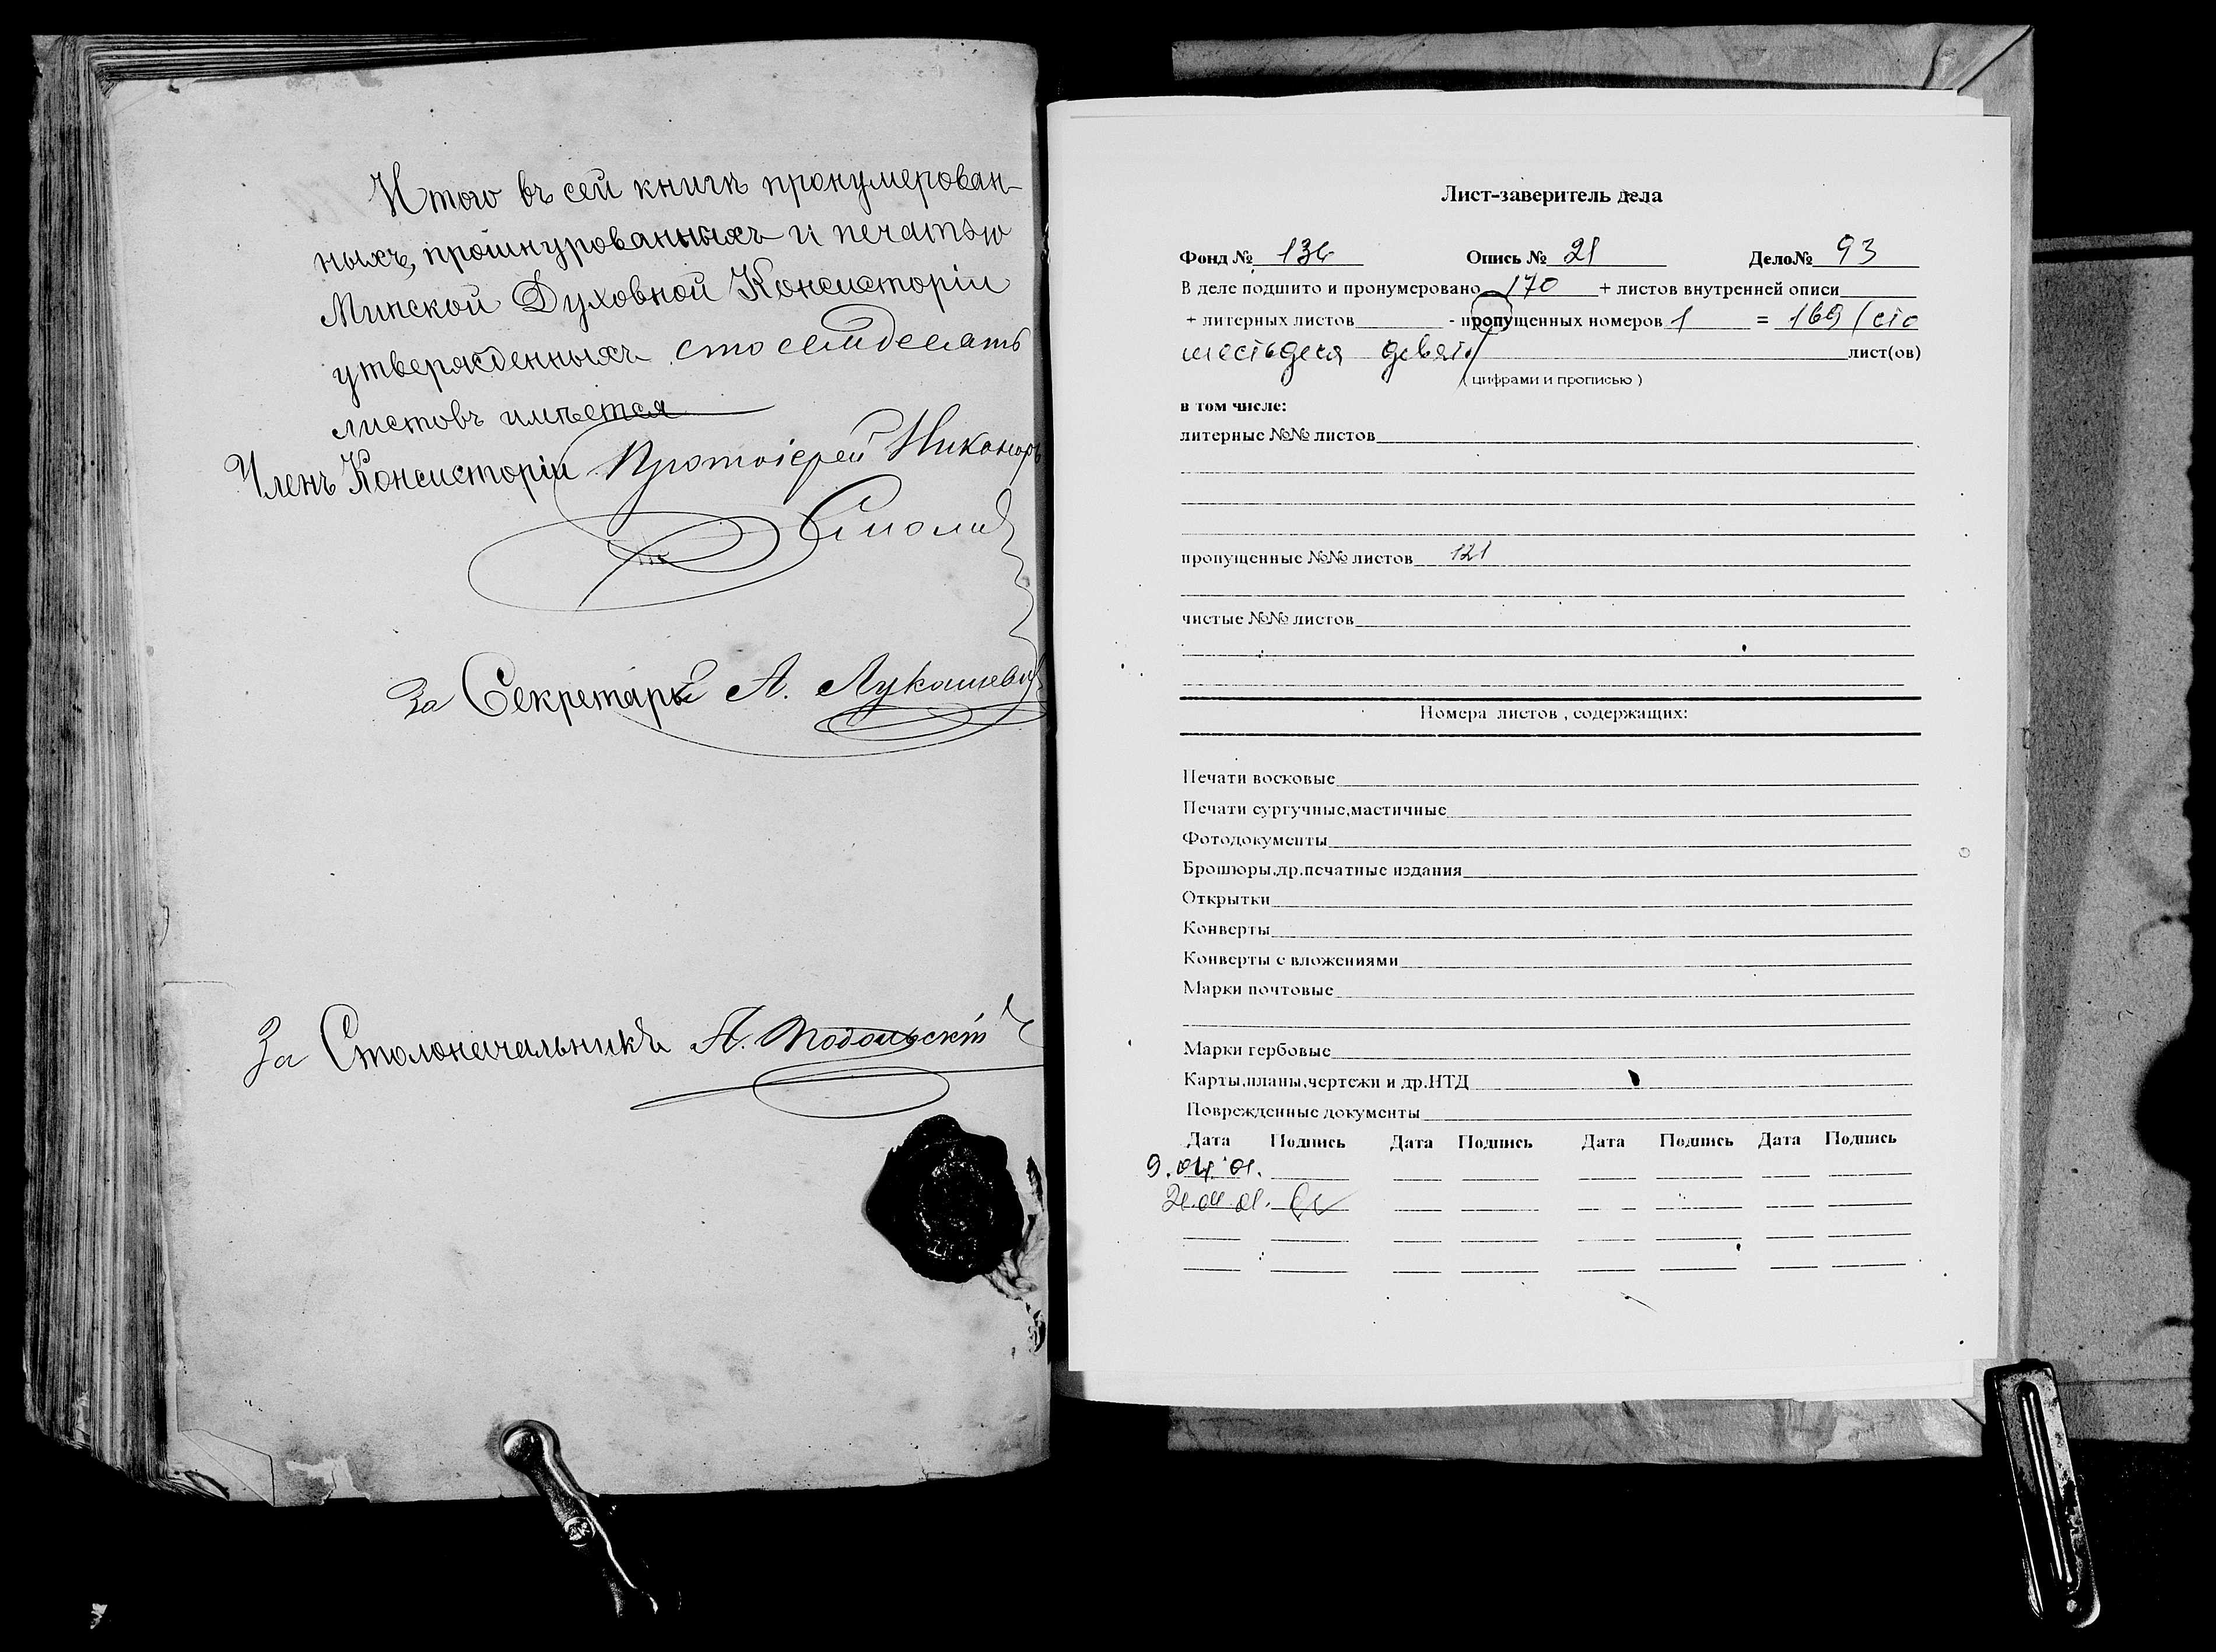 Итого въ сей книгѣ пронумерован-
ныхъ, прошнурованныхъ и печатью
Минской Духовной Консисторіи
утвержденныхъ сто семдесять
листовъ имѣется
Членъ Консисторіи Протоіерей Никаноръ
Смолич
За Секретаря А. Лукашевич
За Столоначальника А. Подольскій
Лист-заверитель дела
Фонд № 136 Опись № 21 Дело№ 93
В деле подшито и пронумеровано 170 + листов внутренней описи
+ литерных листов - пропущенных номеров 1 = 169 (сто
шестьдеся девять) лист(ов)
( цифрами и прописью )
в том числе:
литерные №№ листов
пропущенные №№ листов 121
чистые №№ листов
Номера листов , содержащих:
Печати восковые
Печати сургучные,мастичные
Фотодокументы
Брошюры,др.печатные издания
Открытки
Конверты
Конверты с вложениями
Марки почтовые
Марки гербовые
Карты,планы,чертежи и др.НТД
Поврежденные документы
Дата Подпись Дата Подпись Дата Подпись Дата Подпись
9.04.01.